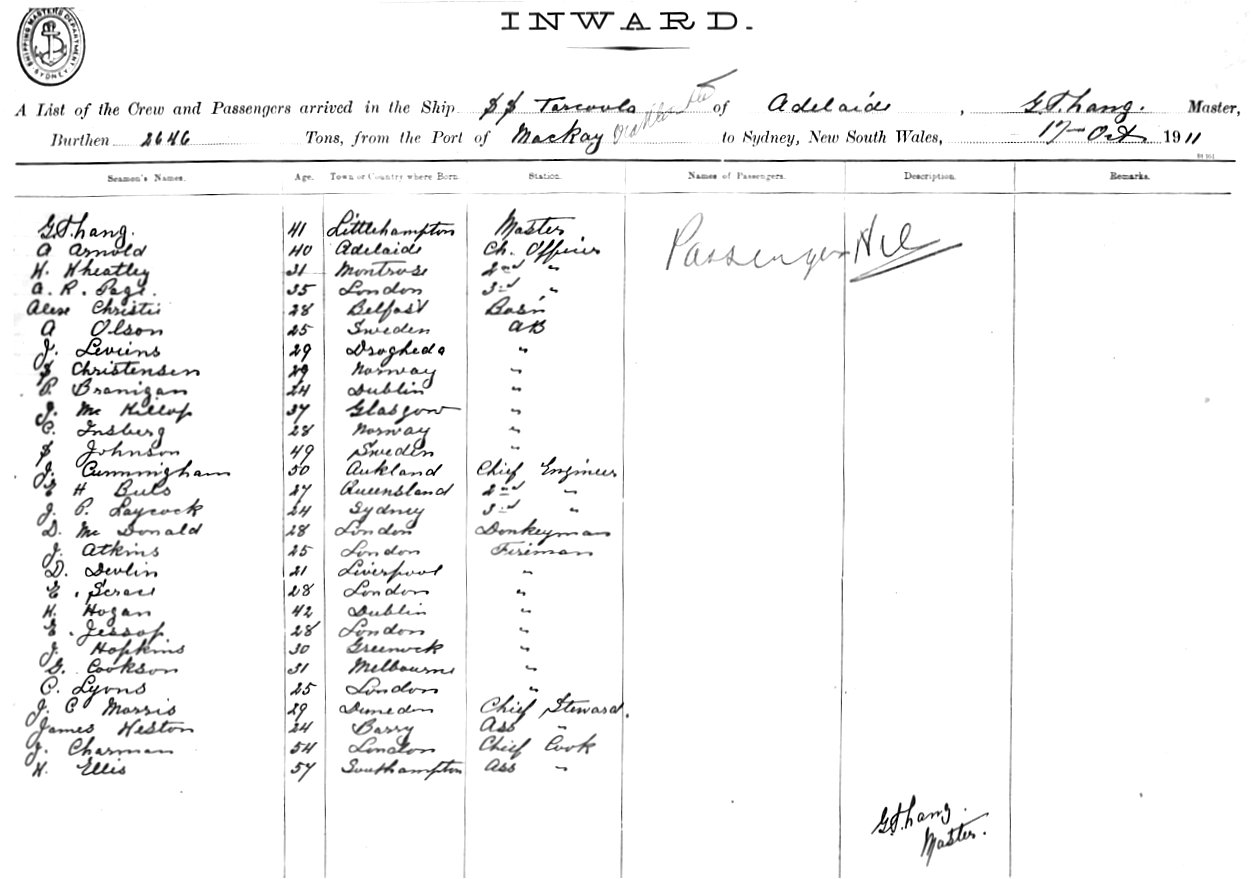 SHIPPING MASTERS DEPARTMENT SYDNEY
INWARD.
A List of the Crew and Passengers arrived in the Ship SS Tarcoola of Adelaide, Master,
Burthen 2646 Tons, from the Port of Mackay to Sydney, New South Wales, 17 Oct 1911
Seamen's Names. Age. Town or Country where Born. Station. Names of Passengers. Description. Remarks.
41 Littlehampton Master Passengers Nil
A Arnold 40 Adelaide Ch. Officer
H. Wheatley 31 Montrose 2nd "
A. R. Page. 35 London 3rd "
Alex Christie 28 Belfast Bosn
A Olson 25 Sweden AB
J. Leviens 29 Drogheda "
S Christensen 29 Norway "
P. Branigan 24 Dublin "
J. Mc Killop 37 Glasgow "
C. Insberg 28 Norway "
S Johnson 49 Sweden "
J. Cunningham 50 Aukland Chief Engineer
E H 27 Queensland 2nd "
J. P. Laycock 24 Sydney 3rd "
D. Mc Donald 28 London Donkeyman
J. Atkins 25 London Fireman
D. Devlin 21 Liverpool "
E. Scrase 28 London "
H. Hogan 42 Dublin "
E. Jessop. 28 London "
J. Hopkins 30 Greenock "
G. Cookson 31 Melbourne "
C. Lyons 25 London "
J. C Morris 29 Dunedon Chief Steward.
James Weston 24 Barry Ass "
J. Charman 54 London Chief Cook
H. Ellis 57 Southampton Ass "
Master.